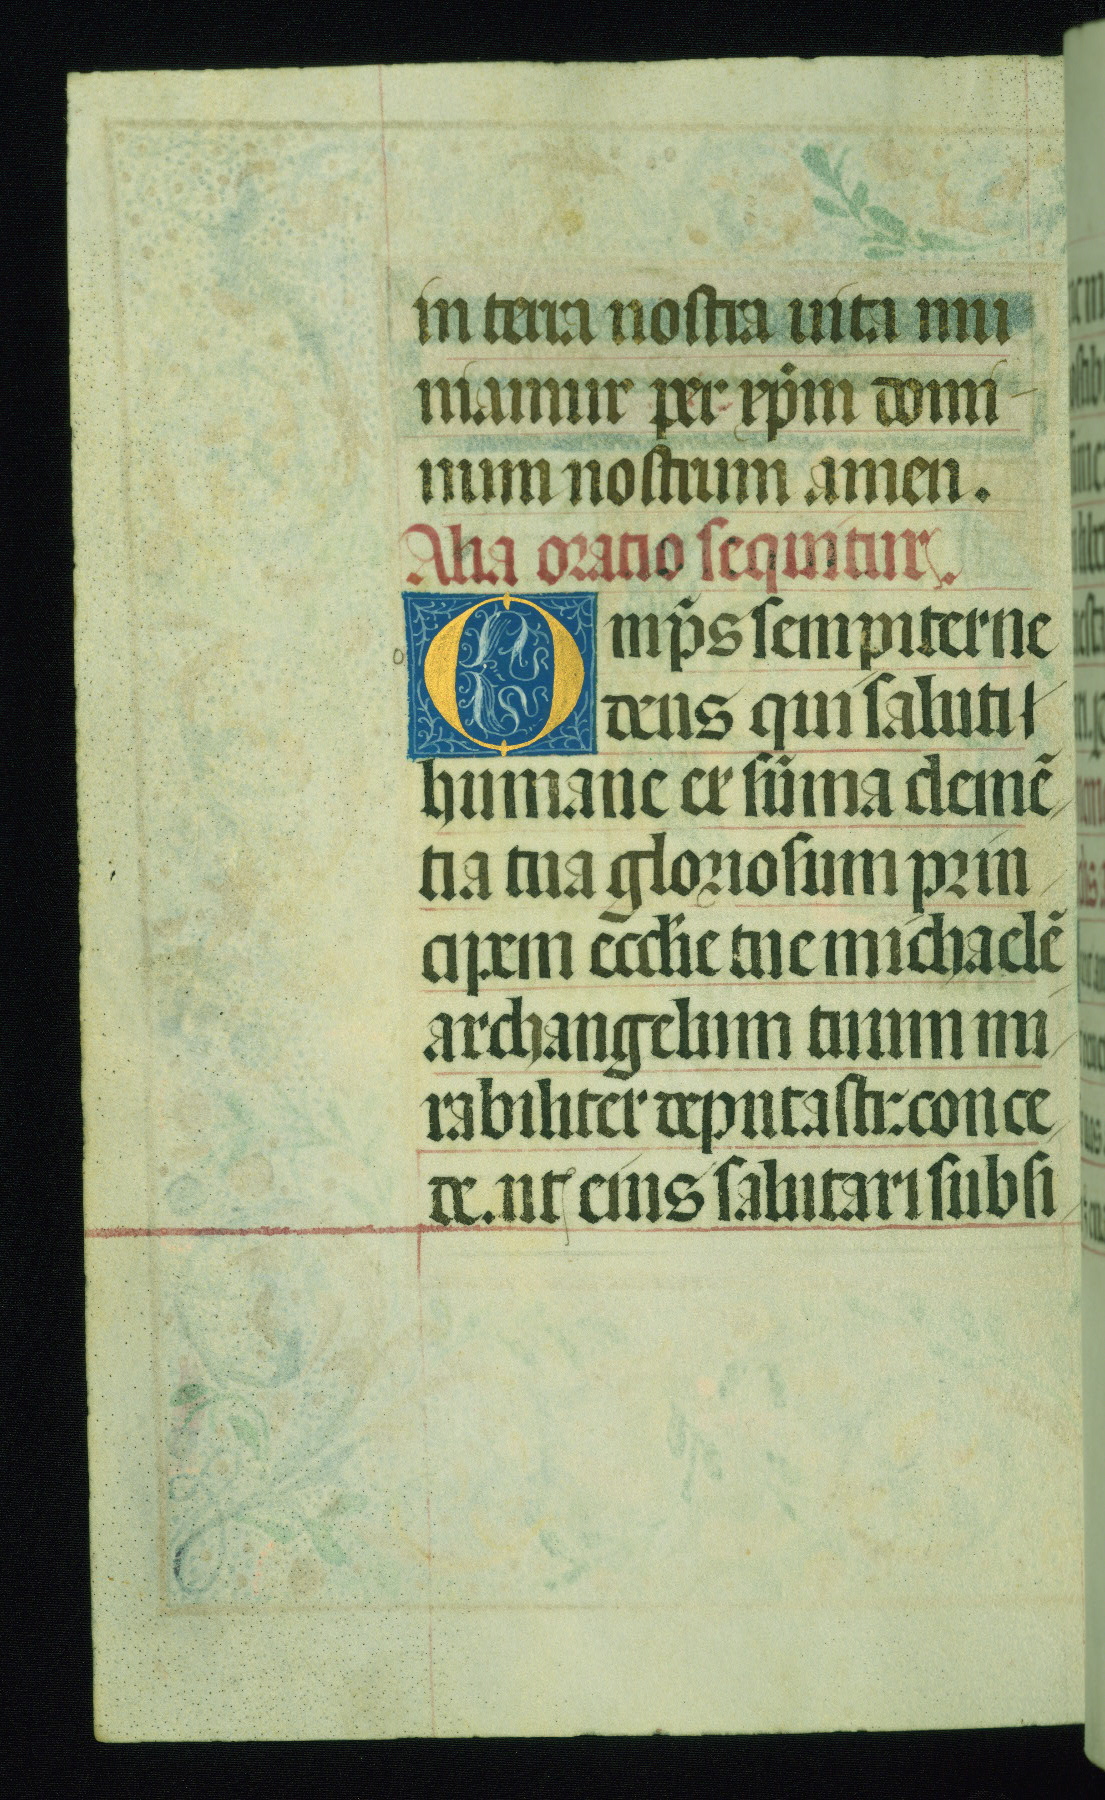 in terra nostra uita mu
niamur per xp̄m domi
num nostrum amen.
Alia oratio sequitur.
Omp̄s sempiterne
deus qui saluti
humane ex sūma clemē
tia tua gloriosum prin
cipem eccl̄ie tue michaelē
archangelum tuum mi
rabiliter deputasti: conce
de. ut eius salutari subsi